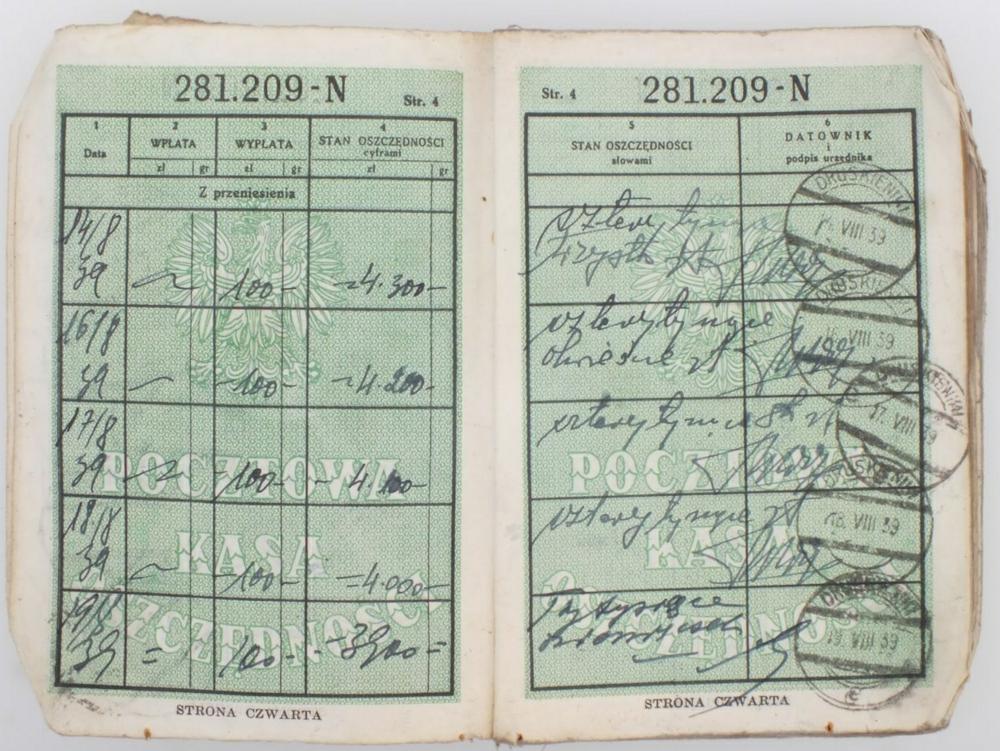 281.209-N
Str. 4
1
Data
2
WPŁATA
zł gr
3
WYPŁATA
zł gr
4
STAN OSZCZĘDNOŚCI
cyframi
zł gr
Z przeniesienia
14/8 39 100- =4.300-
16/8 39 100- =4.200-
17/8 39 100- 4.100-
18/8 39 100- =4.000-
19/8 39 = 100- =3900=
POCZTOWA
KASA
OSZCZĘDNOŚCI
STRONA CZWARTA
Str. 4
281.209-N
5
STAN OSZCZĘDNOŚCI
słowami
6
DATOWNIK
i
podpis urzędnika
cztery
DRUSKIENIKI
VIII 39
cztery tysiące
zł
DRUSKIENIKI
16. VIII 39
cztery
zł
DRUSKIENIKI
17. VIII 39
cztery tysiące zł
DRUSKIENIKI
18. VIII 39
Trzy tysiące
DRUSKIENIKI
19. VIII 39
POCZTOWA
KASA
OSZCZĘDNOŚCI
STRONA CZWARTA